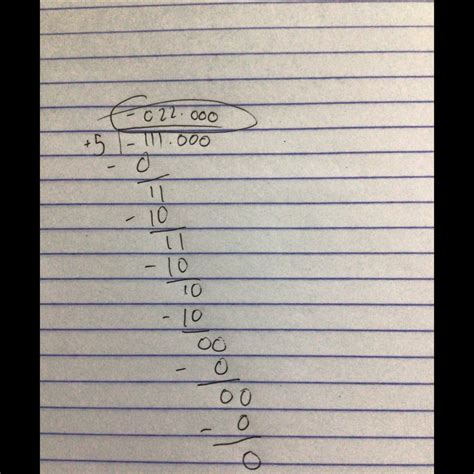 - 022.000
+5 - 111.000
- 0
11
- 10
11
- 10
10
- 10
00
- 0
00
- 0
0